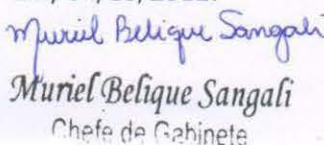 Muriel Belique Sangali
Muriel Belique Sangali
Chefe de Gabinete